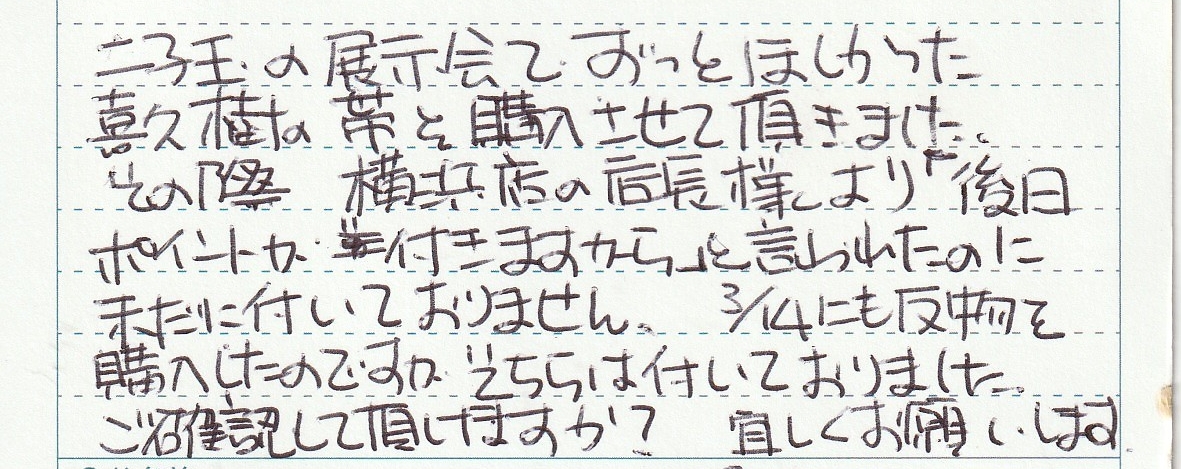 二子玉の展示会でずっとほしかった
喜久樹な帯を購入させて頂きました。
その際 横浜店の店長様より「後日
ポイントが付きますから」と言われたのに
未だに付いておりません。 3/14にも反物を
購入したのですが そちらは付いておりました。
ご確認して頂けますか? 宜しくお願いします。